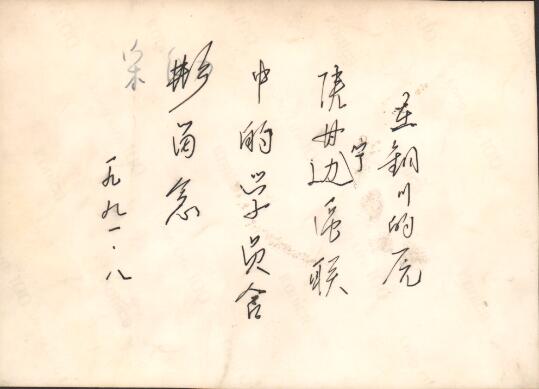 在铜川的原
陕甘宁边区联
中的学员合
影留念
一九九一.八